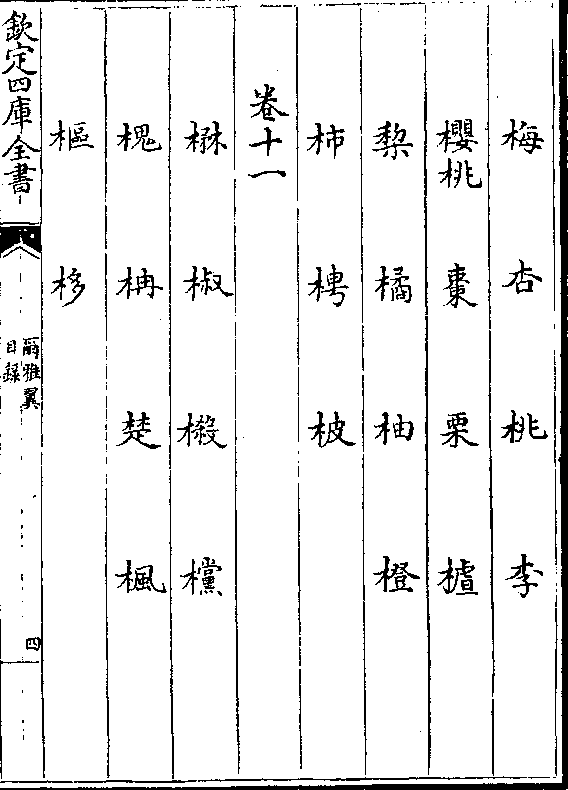 梅 杏 桃 李
櫻桃 棗 栗 樝
棃 橘 柚 橙
柿 梬 柀
卷十一
楙 椒 樧 欓
槐 柟 楚 楓
樞 栘
欽定四庫全書
爾雅翼
目録
四